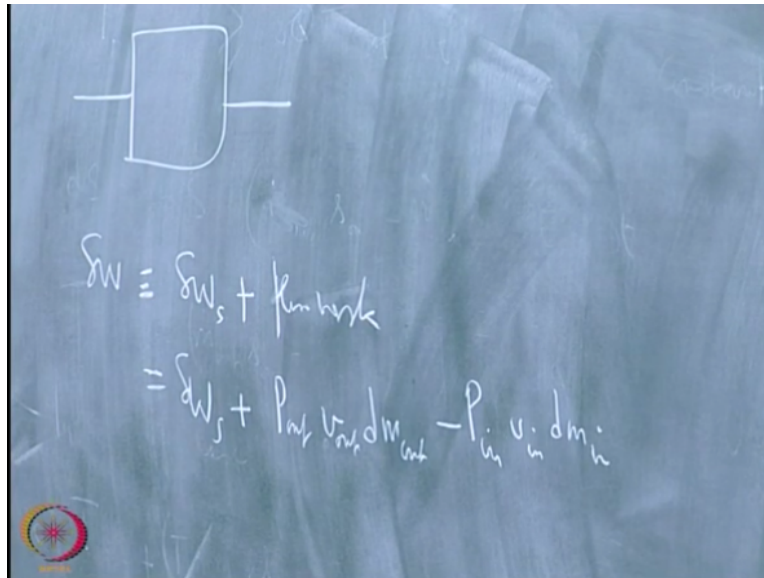 δW ≡ δW_s + flow work
= δW_s + P_out v_out dm_out − P_in v_in dm_in
NPTEL